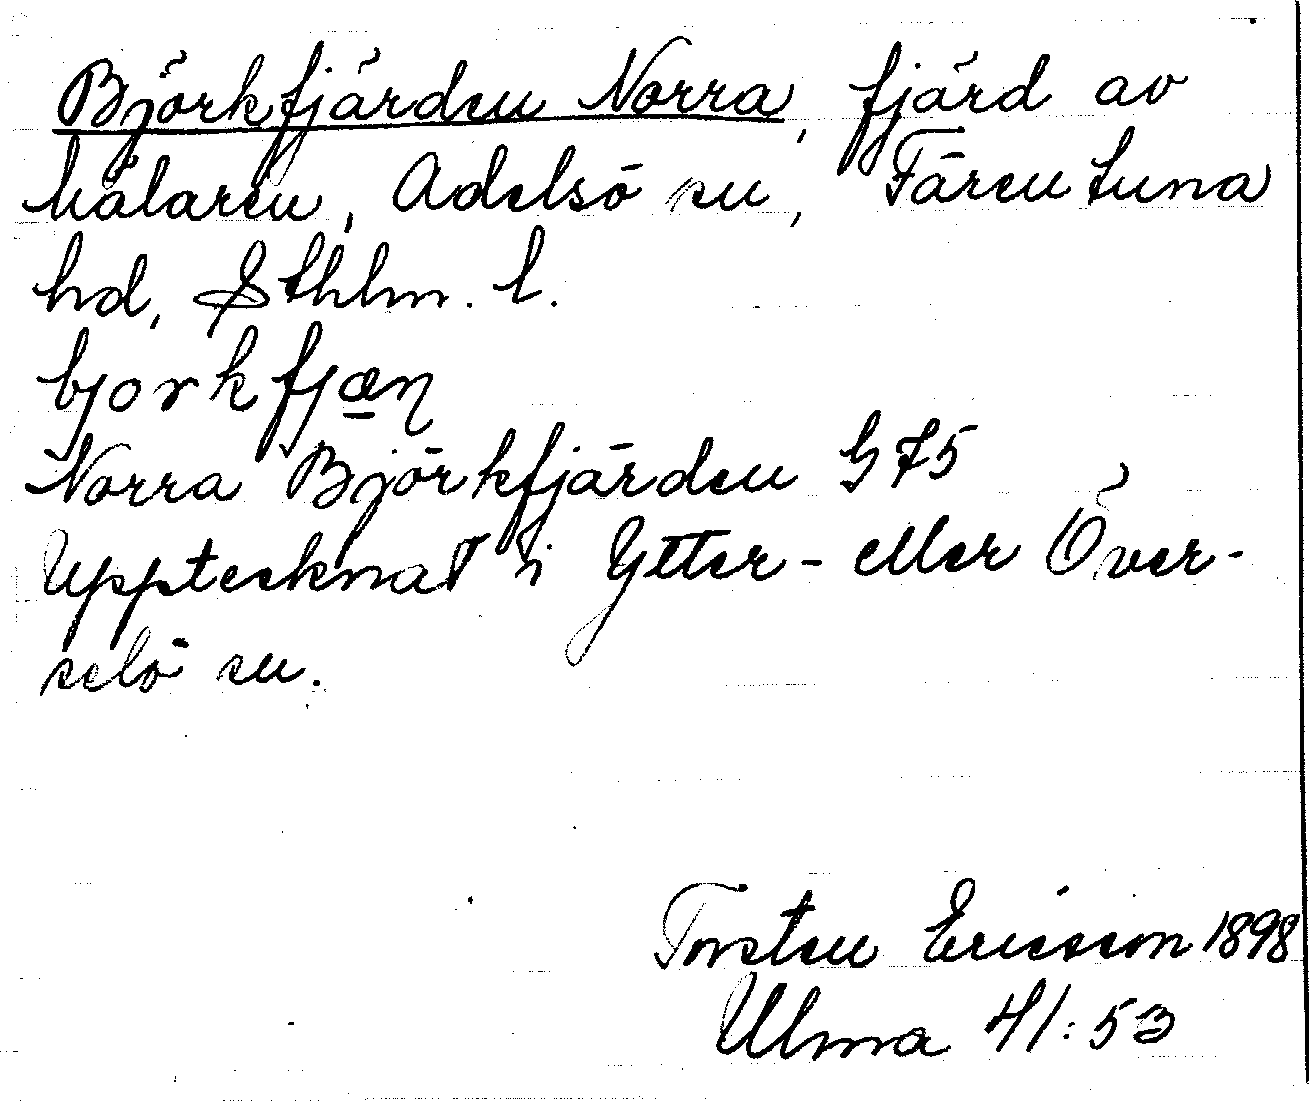 Björkfjärden Norra, fjärd av
Mälaren, Adelsö sn, Färentuna
hd, Sthlm. l.
bjorkfjæ̱ɳ
Norra Björkfjärden G 75
Upptecknat i Ytter- eller Över-
selö sn.
Torsten Ericsson 1898
Ulma 41:53